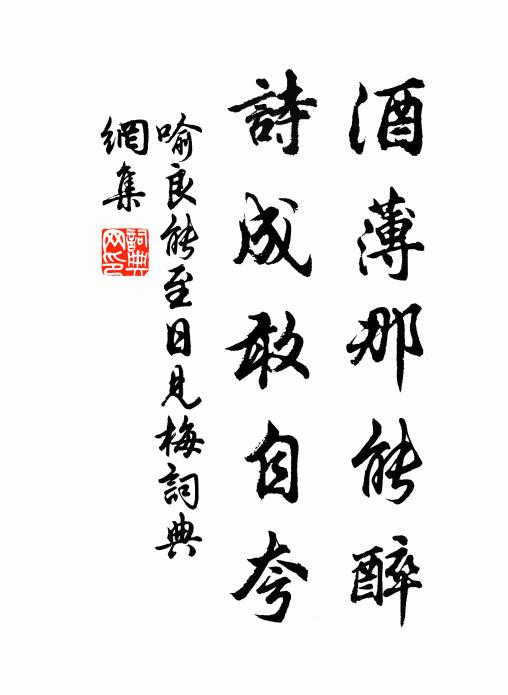 酒薄那能醉
詩成敢自夸
喻良能至日見梅詞典
網集
詞典
网印